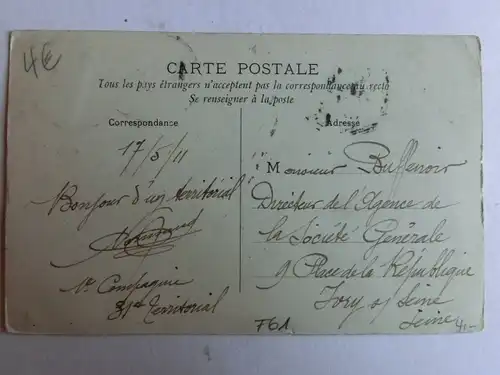 4€
CARTE POSTALE
Tous les pays étrangers n'acceptent pas la correspondance au recto
Se renseigner à la poste
Correspondance
17/5/11
Bonjour d'un territorial
1re Compagnie
31e territorial
Adresse
Monsieur Buffenoir
Directeur de l'Agence de
la Société Générale
9 Place de la République
Ivry s/ Seine
Seine
F61
4,-